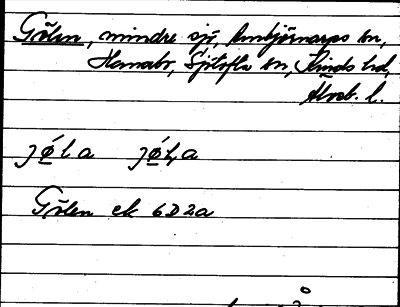 Gölen, mindre sjö, Ambjörnarps sn,
Hemabr, Sjötofta sn, Kinds hd,
Älvsb. l.
jø̄́la jø̄́l,a
Gölen ek 6D2a